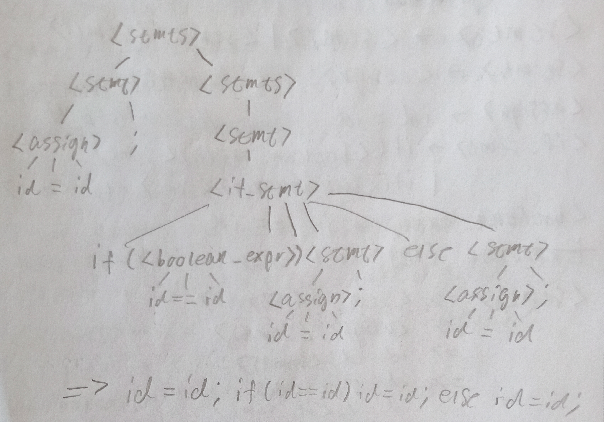 <stmts>
<stmt> <stmts>
<assign> ; <stmt>
id = id <if_stmt>
if (<boolean_expr>) <stmt> else <stmt>
id == id <assign> ; <assign> ;
id = id id = id
=> id = id; if (id==id) id=id; else id=id;